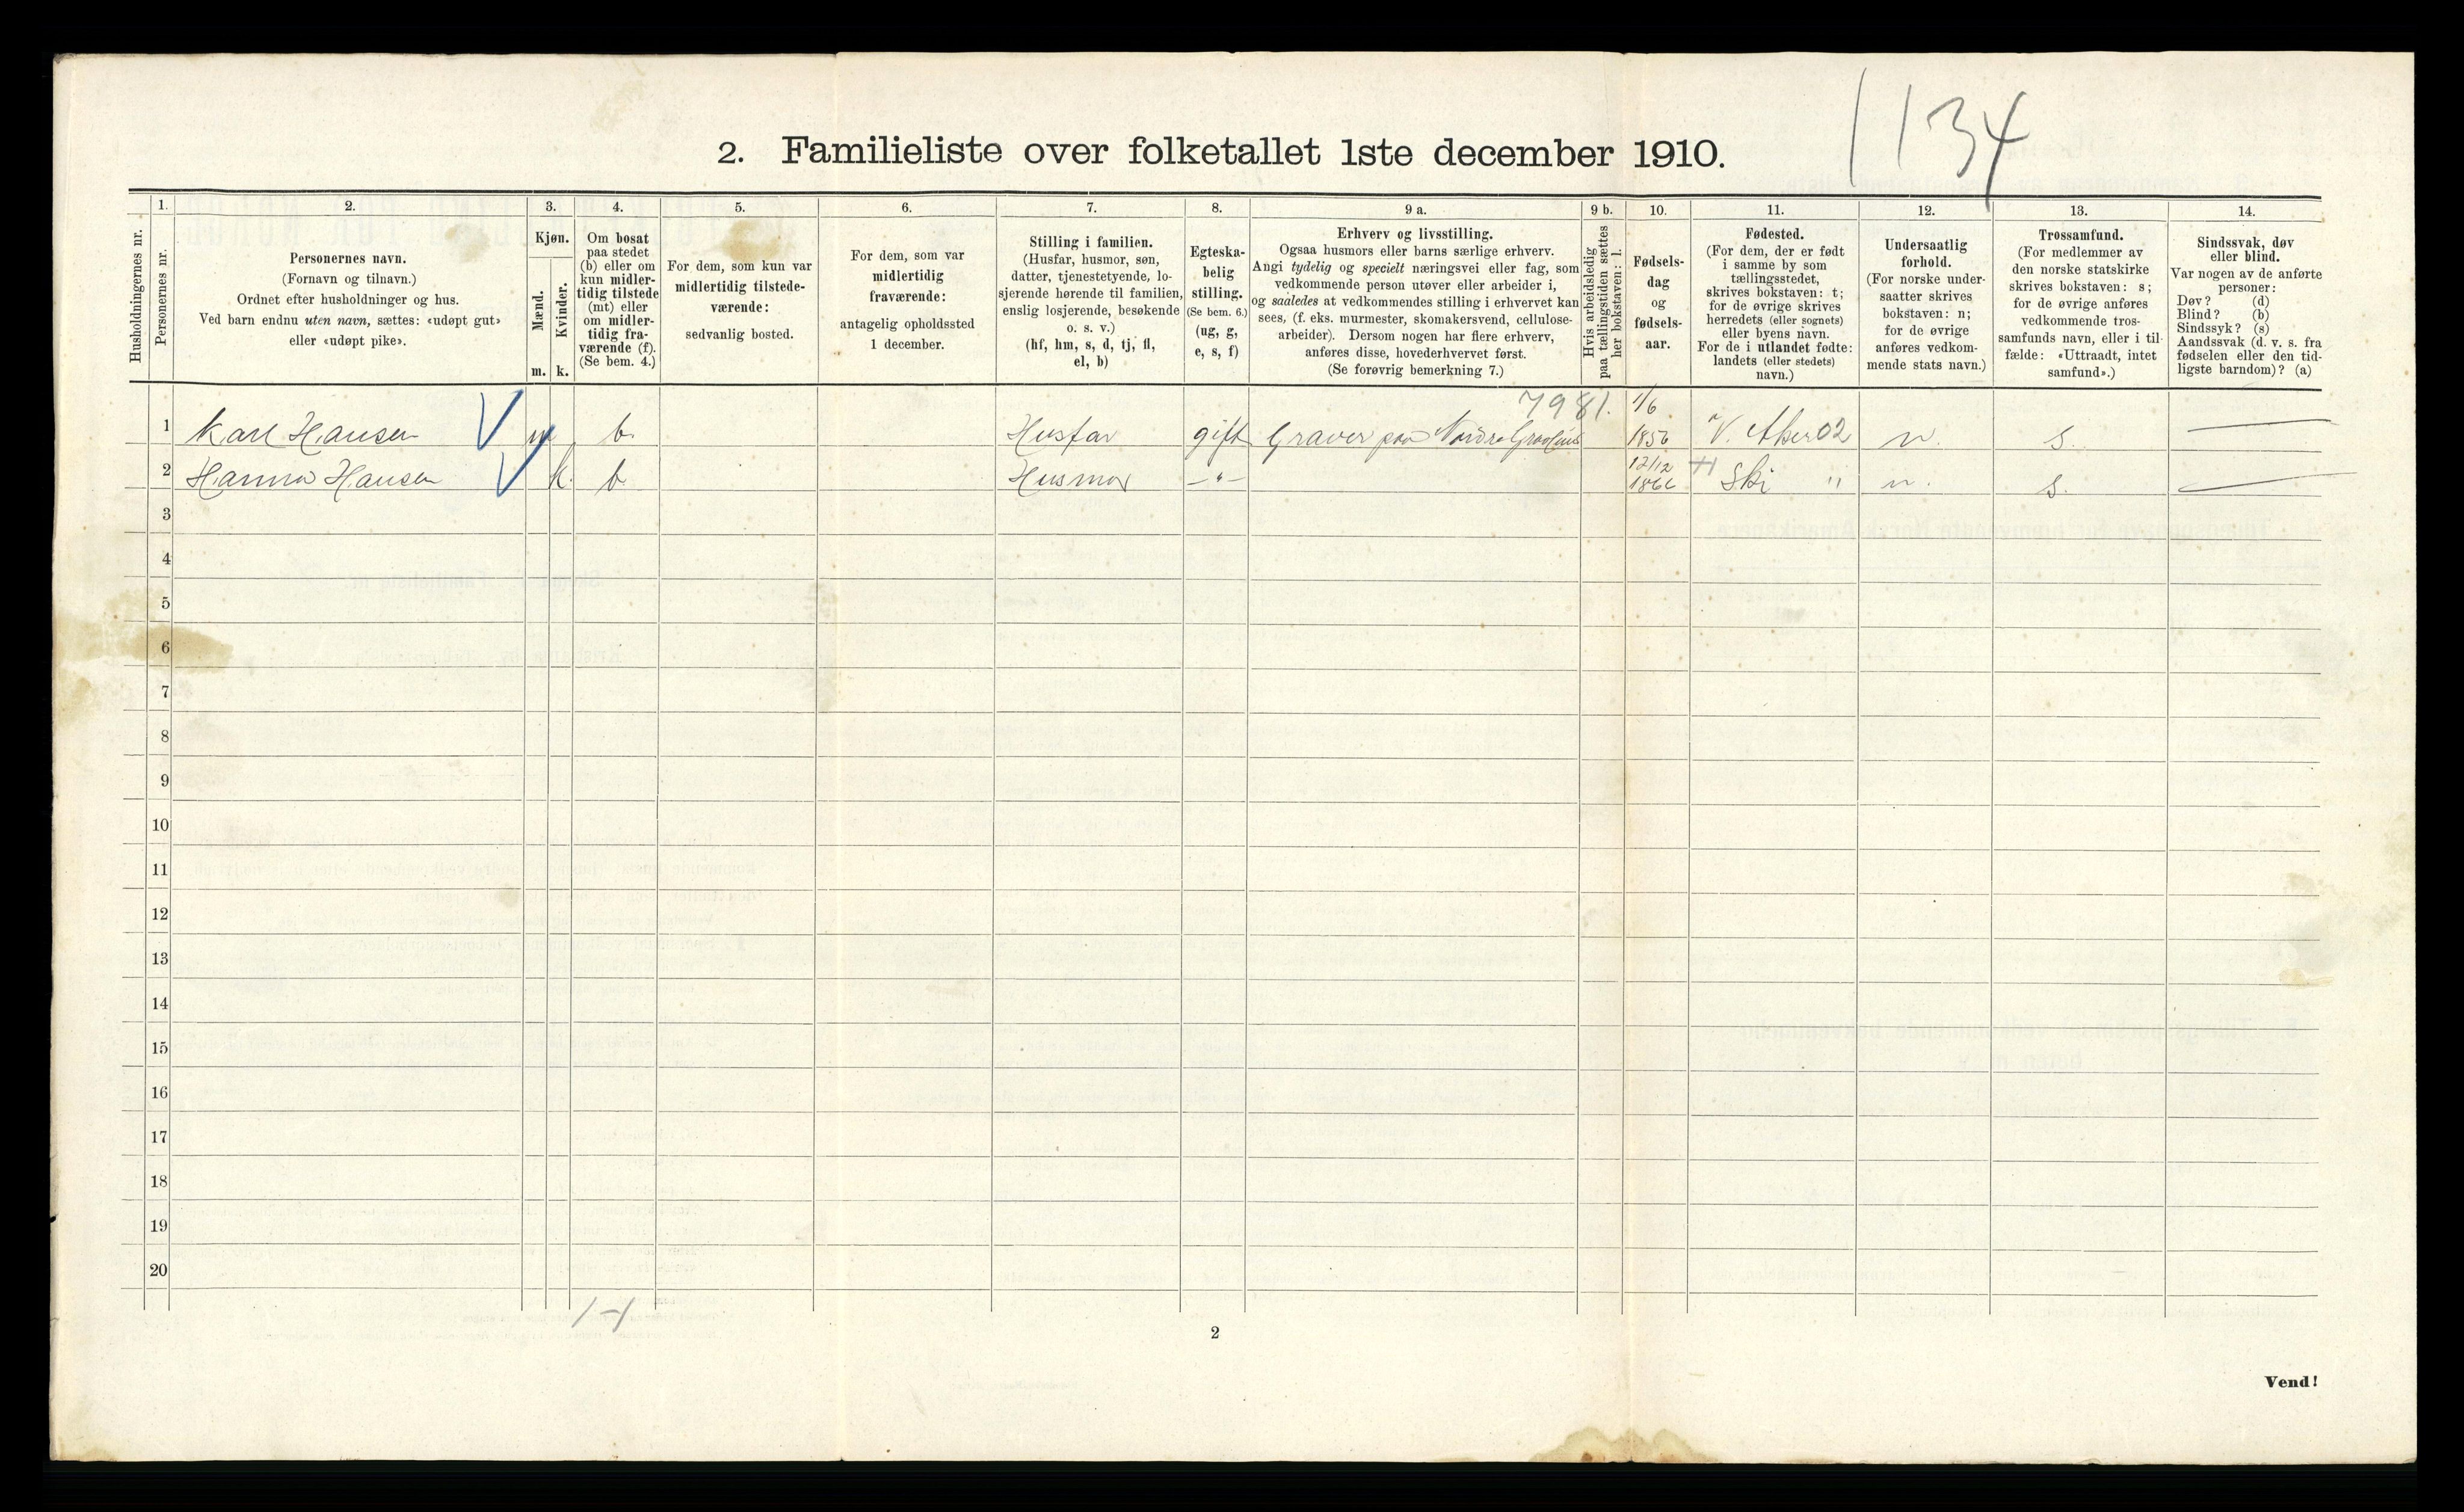 1134
2. Familieliste over folketallet 1ste december 1910.
Husholdningernes nr.
1.
Personernes nr.
2.
Personernes navn.
(Fornavn og tilnavn.)
Ordnet efter husholdninger og hus.
Ved barn endnu uten navn, sættes: «udøpt gut»
eller «udøpt pike».
3.
Kjøn.
Mænd.
Kvinder.
m. k.
4.
Om bosat
paa stedet
(b) eller om
kun midler-
tidig tilstede
(mt) eller
om midler-
tidig fra-
værende (f).
(Se bem. 4.)
5.
For dem, som kun var
midlertidig tilstede-
værende:
sedvanlig bosted.
6.
For dem, som var
midlertidig
fraværende:
antagelig opholdssted
1 december.
7.
Stilling i familien.
(Husfar, husmor, søn,
datter, tjenestetyende, lo-
sjerende hørende til familien,
enslig losjerende, besøkende
o. s. v.)
(hf, hm, s, d, tj, fl,
el, b)
8.
Egteska-
belig
stilling.
(Se bem. 6.)
(ug, g,
e, s, f)
9 a.
Erhverv og livsstilling.
Ogsaa husmors eller barns særlige erhverv.
Angi tydelig og specielt næringsvei eller fag, som
vedkommende person utøver eller arbeider i,
og saaledes at vedkommendes stilling i erhvervet kan
sees, (f. eks. murmester, skomakersvend, cellulose-
arbeider). Dersom nogen har flere erhverv,
anføres disse, hovederhvervet først.
(Se forøvrig bemerkning 7.)
9 b.
Hvis arbeidsledig
paa tællingstiden sættes
her bokstaven: l.
10.
Fødsels-
dag
og
fødsels-
aar.
11.
Fødested.
(For dem, der er født
i samme by som
tællingsstedet,
skrives bokstaven: t;
for de øvrige skrives
herredets (eller sognets)
eller byens navn.
For de i utlandet fødte:
landets (eller stedets)
navn.)
12.
Undersaatlig
forhold.
(For norske under-
saatter skrives
bokstaven: n;
for de øvrige
anføres vedkom-
mende stats navn.)
13.
Trossamfund.
(For medlemmer av
den norske statskirke
skrives bokstaven: s;
for de øvrige anføres
vedkommende tros-
samfunds navn, eller i til-
fælde: «Uttraadt, intet
samfund».)
14.
Sindssvak, døv
eller blind.
Var nogen av de anførte
personer:
Døv? (d)
Blind? (b)
Sindssyk? (s)
Aandssvak (d. v. s. fra
fødselen eller den tid-
ligste barndom)? (a)
7981. 1/6
1 Karl Hansen m b. Husfar gift Graver paa Nordre 1856 V. Aker 02 n. s.
17/12
2 Hanna Hansen k. b Husmor -"- 1866 Ski " n. s.
3
4
5
6
7
8
9
10
11
12
13
14
15
16
17
18
19
20
1-1
2
Vend!